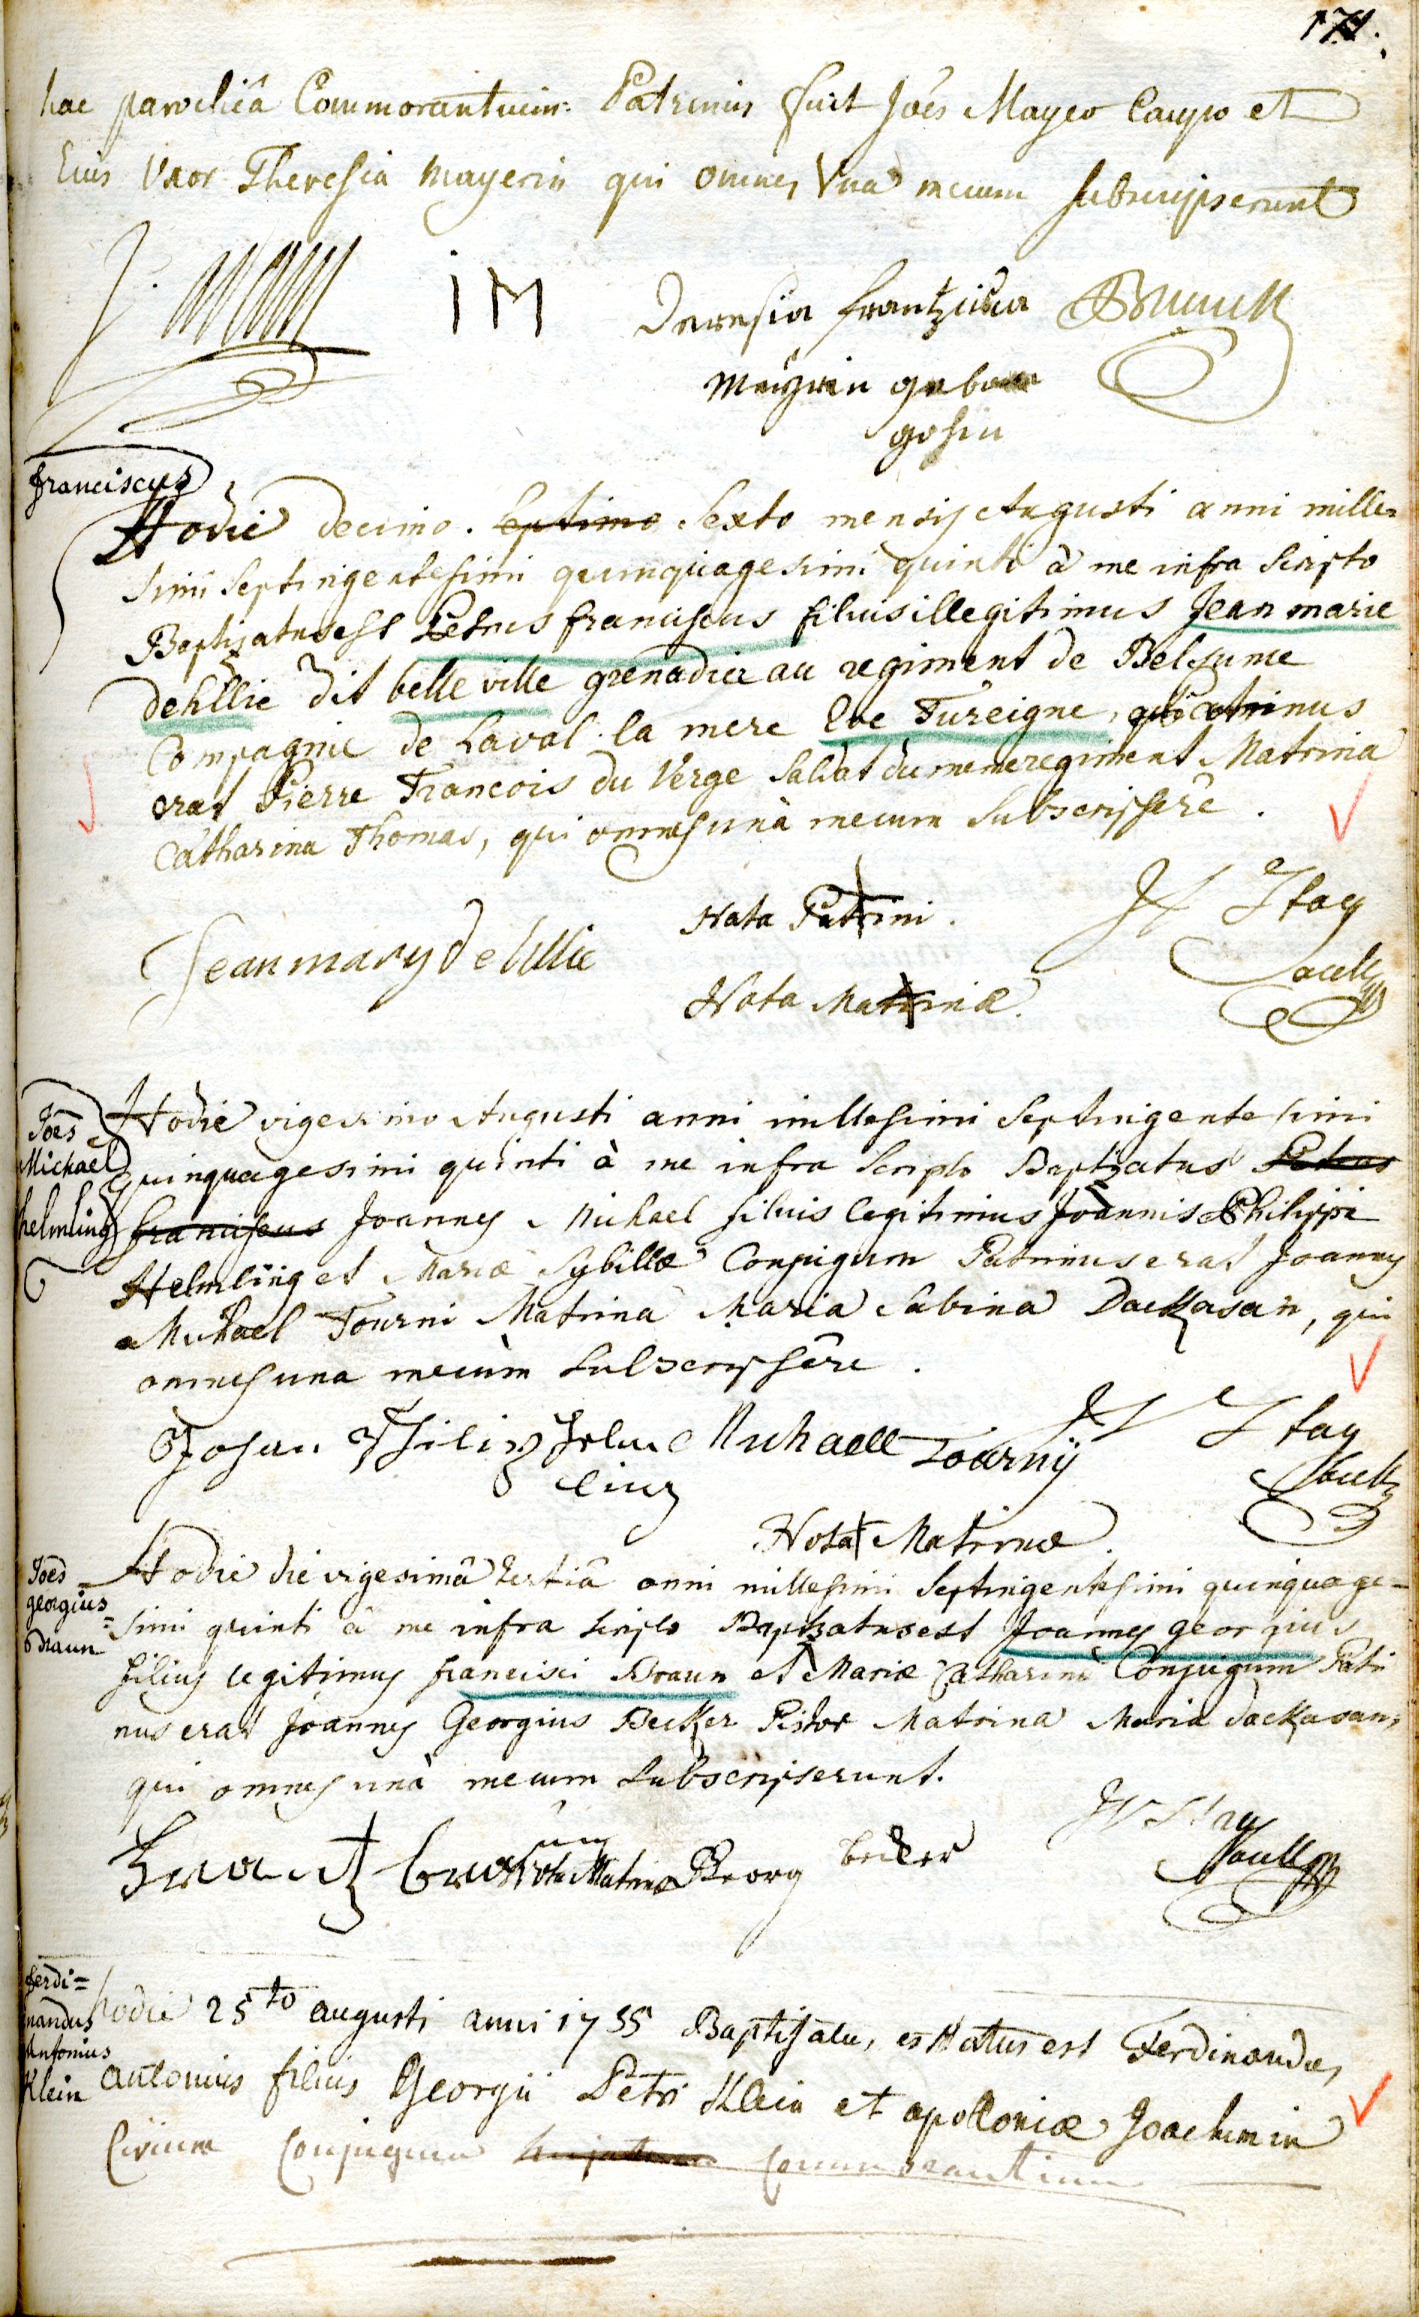 171.
hac parochiâ Commorantium: Patrinus fuit Joês Mayer Caupo et
Eius Uxor Theresia Mayerin qui omnes Una mecum subscripserunt
iM
Deresia frantzisca
Meyerin gebore
gosin
franciscus
Hodie decimo. septimo Sexto mensis Augusti anni mille=
simi septingentesimi quinquagesimi quinti à me infra scripto
Baptizatus est Petrus franciscus filius illegitimus Jean marie
dehillie dit belle ville grenadier au regiment de Belsunce
Compagnie de Laval. la mere Eve Tureigne, patrinus
erat Pierre Francois du Verge Saldat du meme regiment Matrina
Catharina Thomas, qui omnes unà mecum subscripsêre.
Nota Patrini.
Jean mary De hillie
Nota Matrinæ.
Joês
Michael
helmling
Hodie vigesimo Augusti anni millesimi septingentesimi
quinquagesimi quinti à me infra scripto Baptizatus Petrus
franciscus Joannes Michael filius legitimus Joannis Philippi
Helmling et Mariæ Sybillæ Conjugum Patrinus erat Joannes
Michael Tourni Matrina Maria Sabina Dackasan, qui
omnes una mecùm subscripsêre.
Johan Philip Helm Michaell Tournÿ
ling
Nota Matrinæ.
Joês
georgius
Braun
Hodie die vigesimâ tertiâ anni millesimi septingentesimi quinquage=
simi quinti à me infra scripto Baptizatus est Joannes georgius
filius legitimus francisci Braun et Mariæ Catharinæ Conjugum Patri
nus erat Joannes Georgius Becker Pistor Matrina Maria dackasan,
qui omnes unà mecum subscripserunt.
Nota Matrinæ Georg becker
Ferdi=
nandus
Antonius
Klein
hodie 25to augusti anni 1755 Baptisatus, et Natus est Ferdinandus,
antonius filius Georgii Petri Klein et apolloniæ Joachimin
Civium Conjugum Commorantium